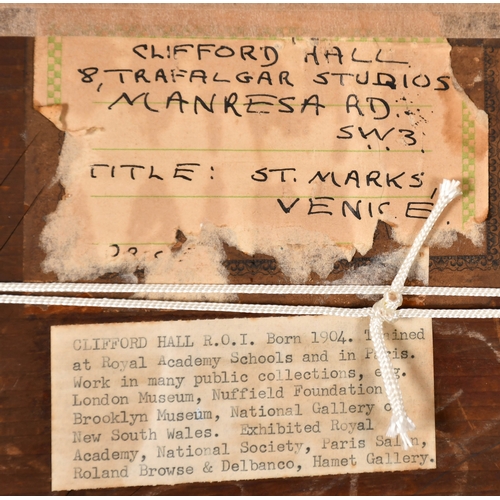 CLIFFORD HALL
8, TRAFALGAR STUDIOS
MANRESA RD.
SW.3.
TITLE: ST. MARKS,
VENICE.
CLIFFORD HALL R.O.I. Born 1904. Trained
at Royal Academy Schools and in Paris.
Work in many public collections, eg.
London Museum, Nuffield Foundation,
Brooklyn Museum, National Gallery of
New South Wales. Exhibited Royal
Academy, National Society, Paris Salon,
Roland Browse & Delbanco, Hamet Gallery.